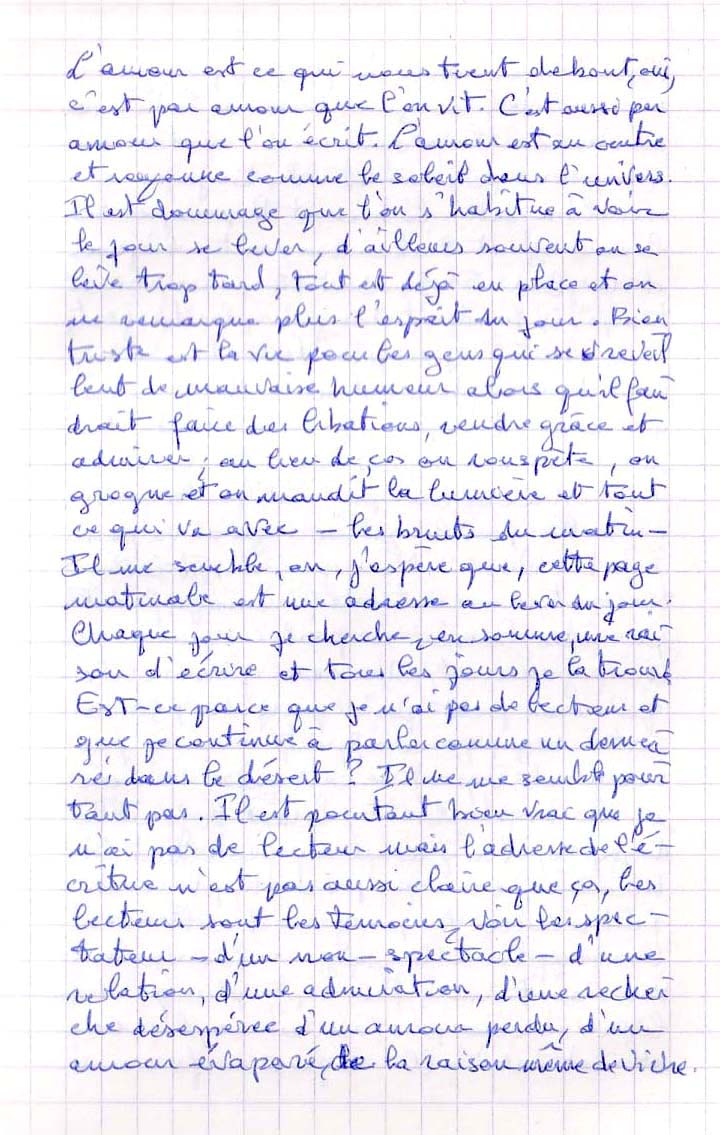 L'amour est ce qui nous tient debout, oui,
c'est par amour que l'on vit. C'est aussi par
amour que l'on écrit. L'amour est au centre
et rayonne comme le soleil dans l'univers.
Il est dommage que l'on s'habitue à voir
le jour se lever, d'ailleurs souvent on se
lève trop tard, tout est déjà en place et on
ne remarque plus l'esprit du jour. Bien
triste est la vie pour les gens qui se réveil
lent de mauvaise humeur alors qu'il fau
drait faire des libations, rendre grâce et
admirer ; au lieu de ça on rouspète, on
grogne et on maudit la lumière et tout
ce qui va avec - les bruits du matin -
Il me semble, on, j'espère que, cette page
matinale est une adresse au lever du jour.
Chaque jour je cherche, en somme, une rai
son d'écrire et tous les jours je la trouve
Est-ce parce que je n'ai pas de lecteur et
que je continue à parler comme un demeu
ré dans le désert ? Il ne me semble pour
tant pas. Il est pourtant bien vrai que je
n'ai pas de lecteur mais l'adresse de l'é-
criture n'est pas aussi claire que ça, les
lecteurs sont les témoins, voir les spec-
tateur - d'un non-spectacle - d'une
relation, d'une admiration, d'une recher
che désespérée d'un amour perdu, d'un
amour évaporé, de la raison même de vivre.